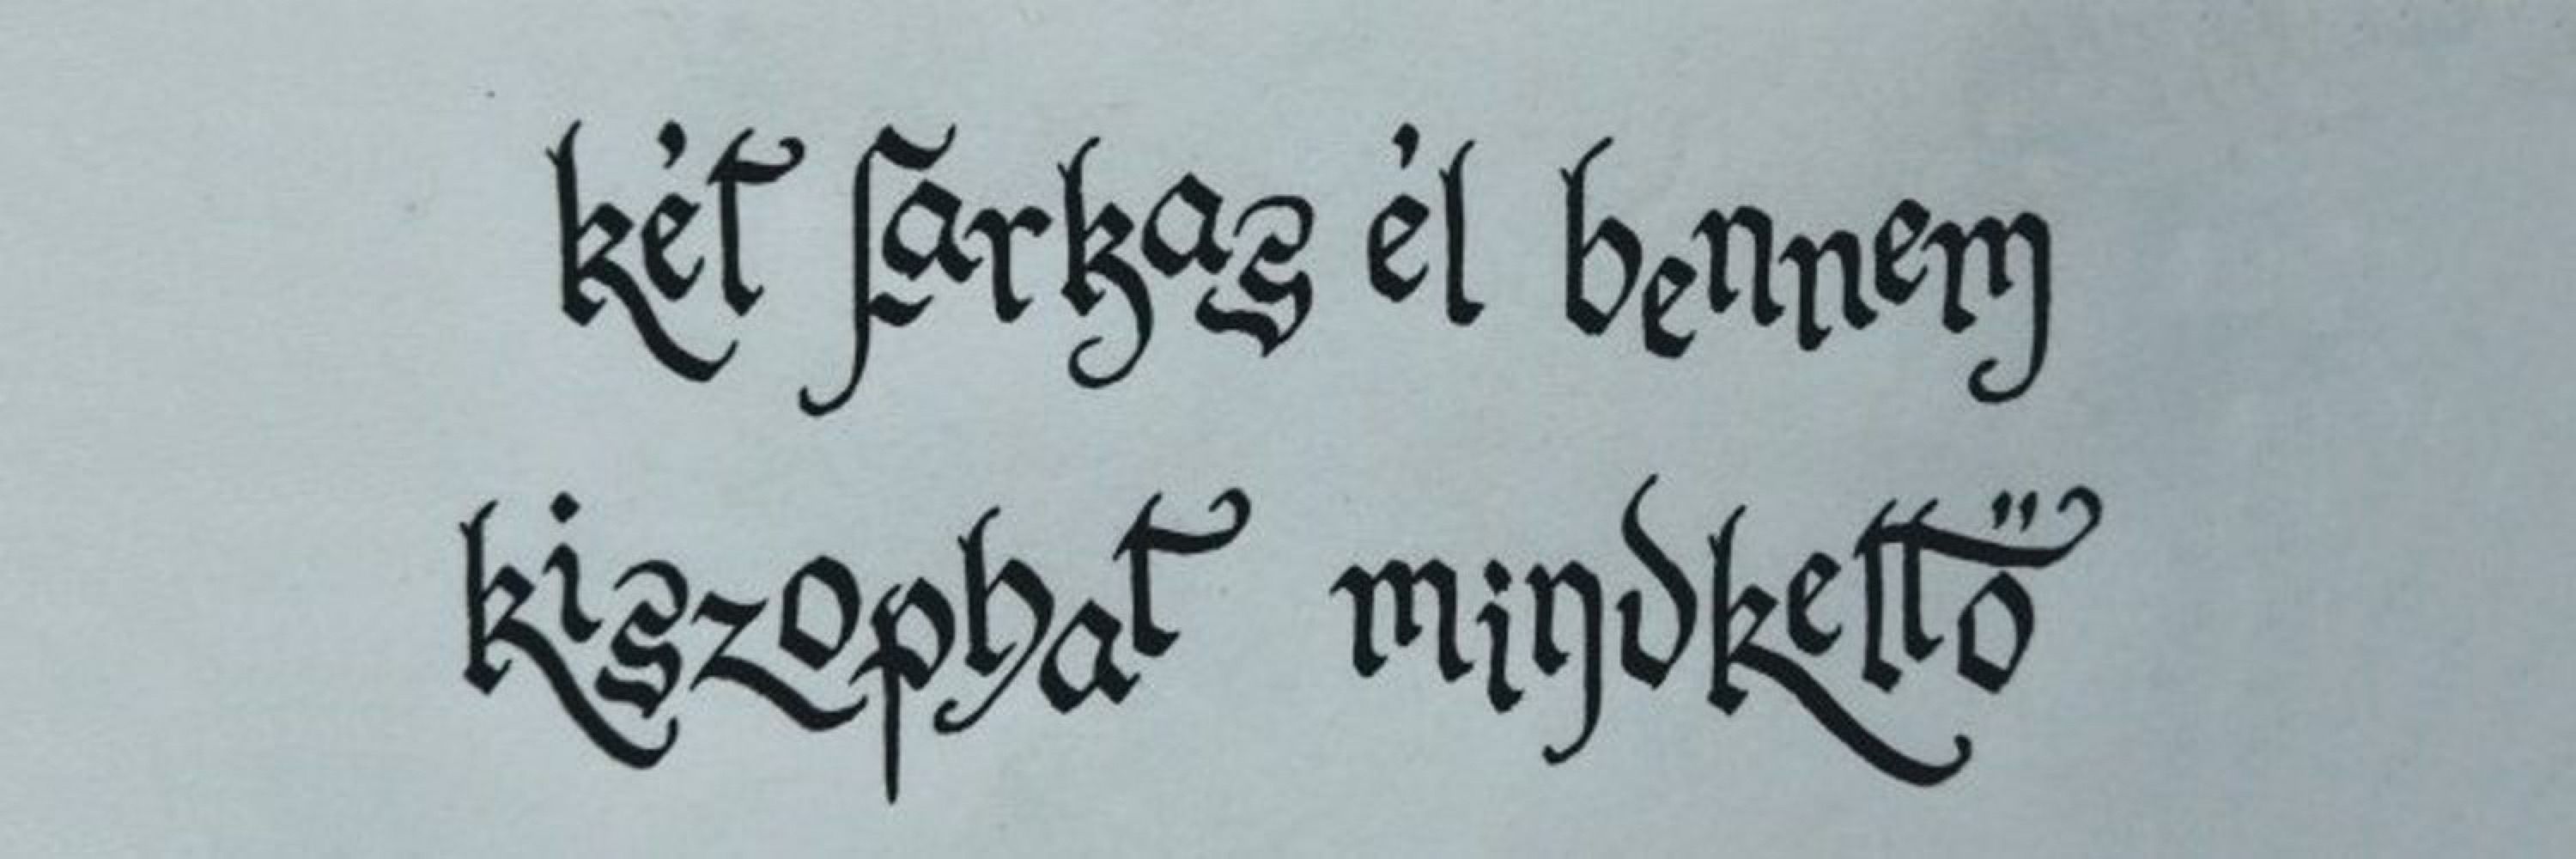 két farkas él bennem
kiszophat mindkettő